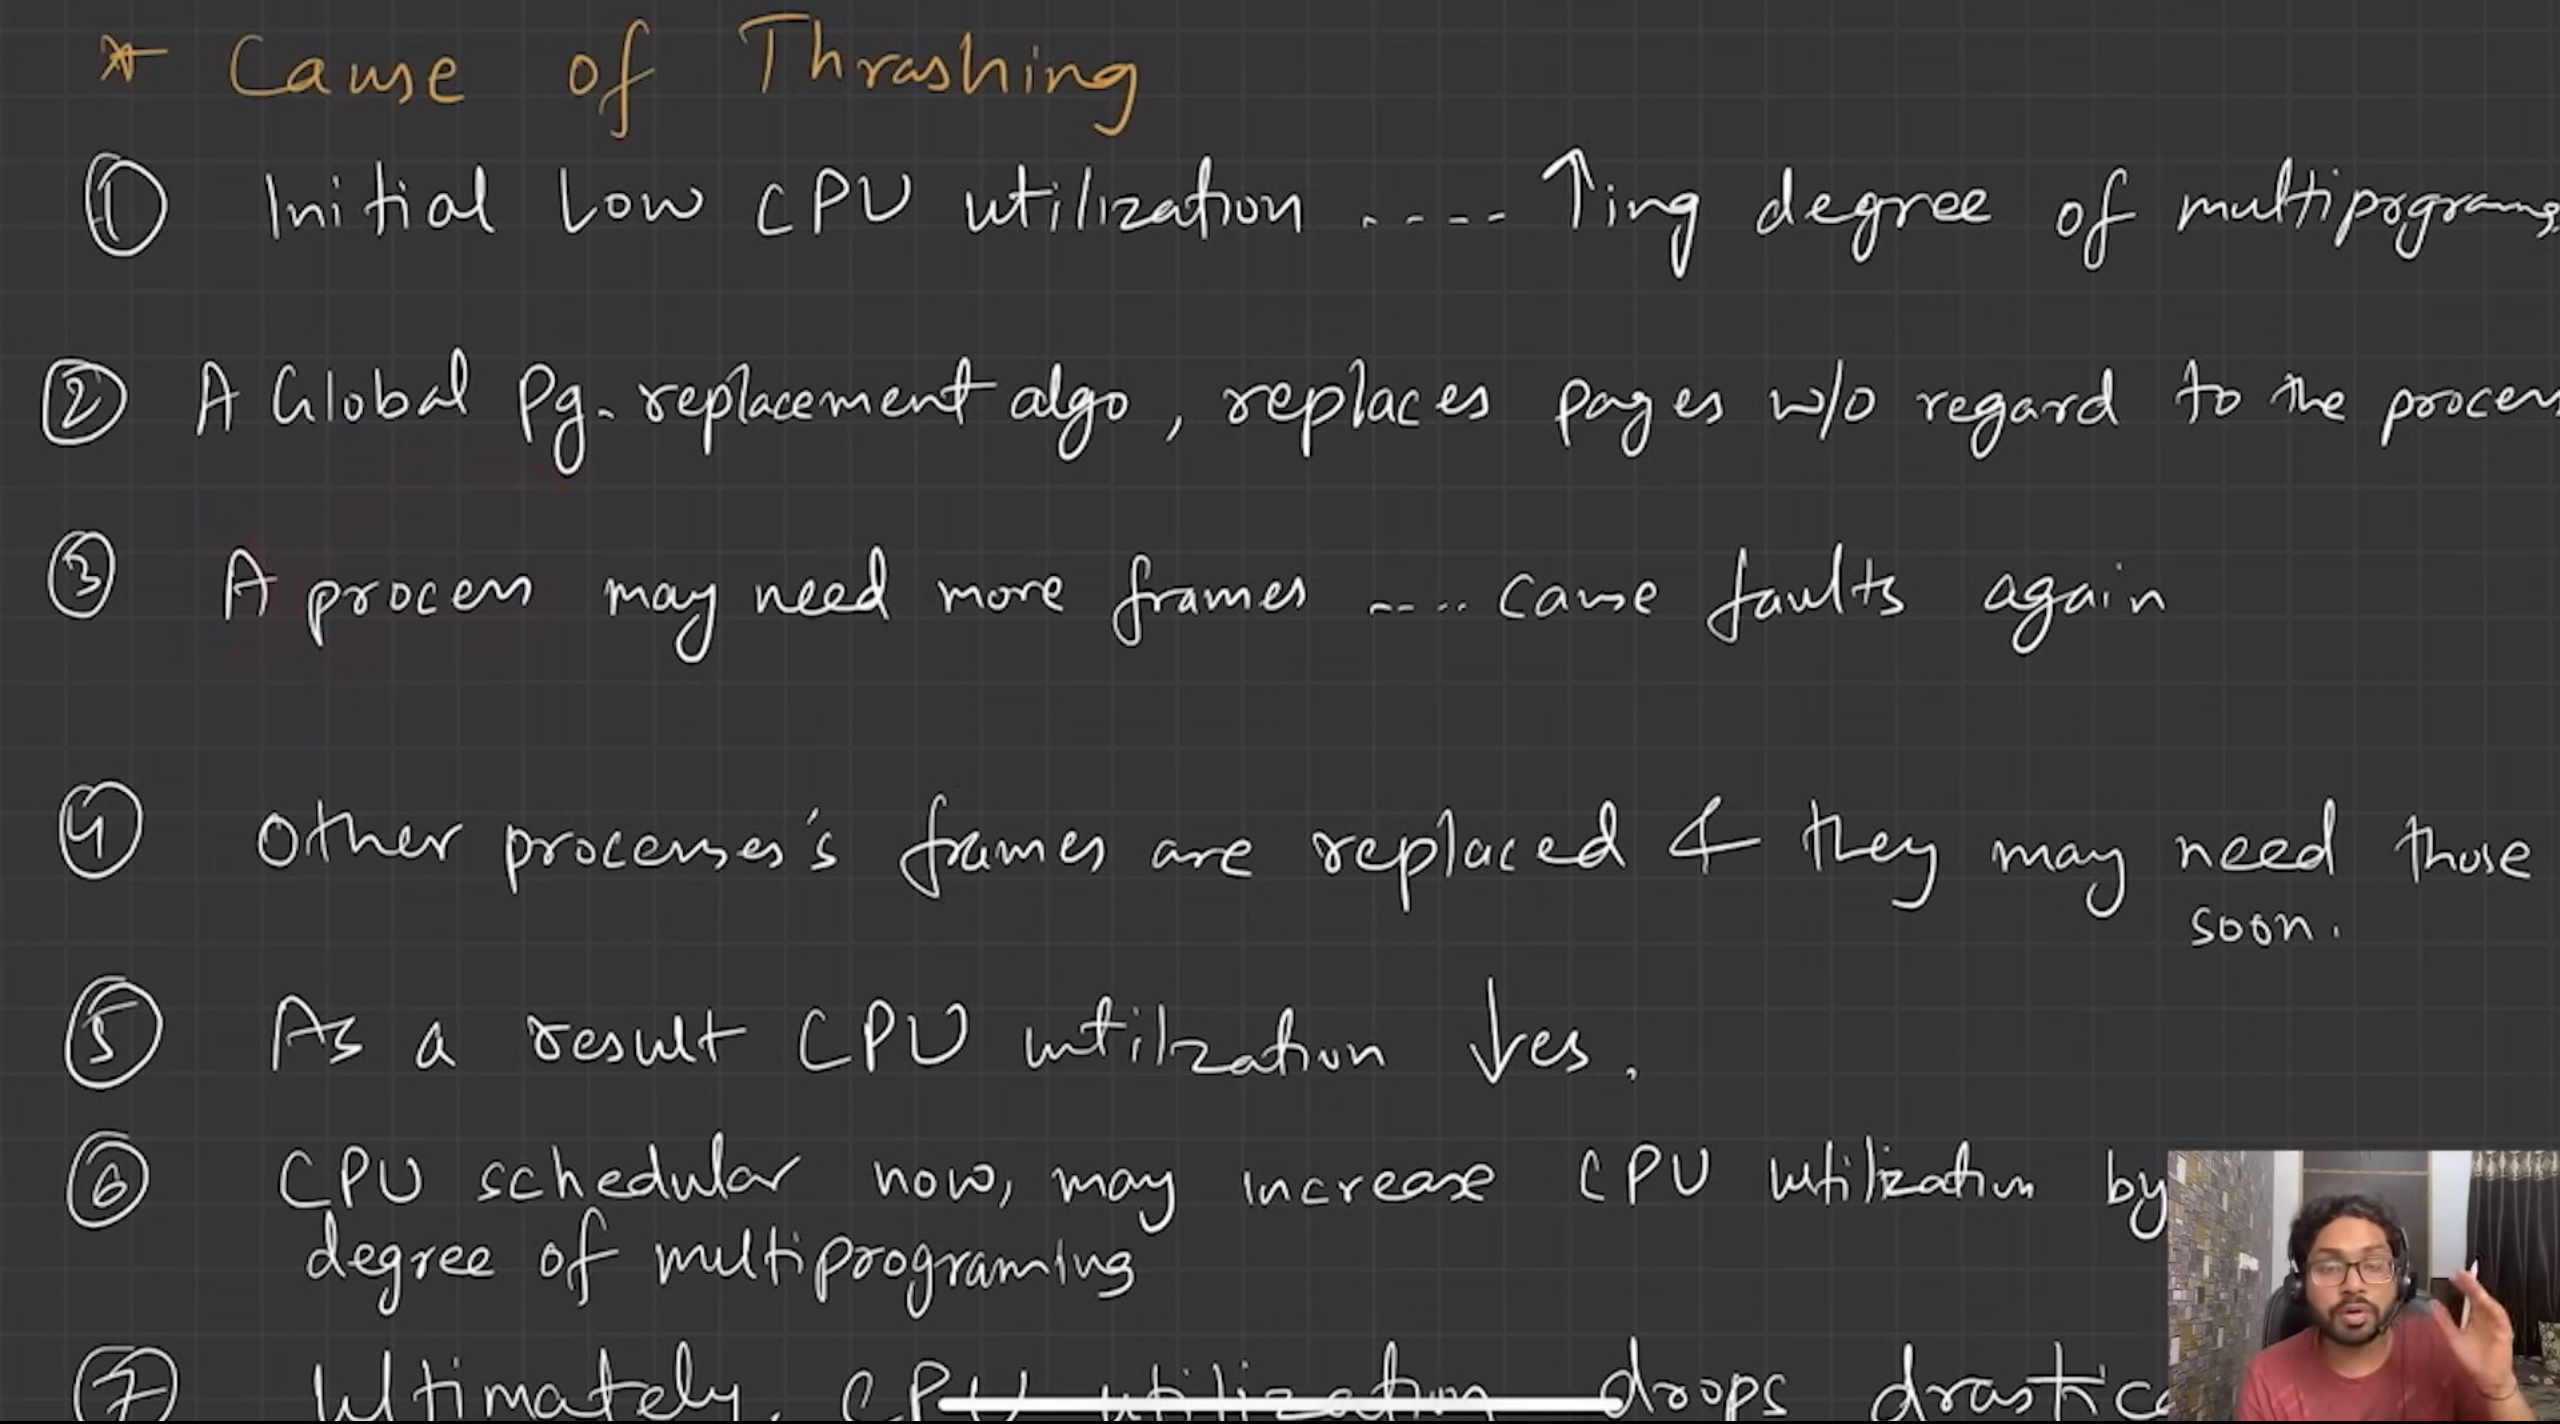 * Cause of Thrashing
① Initial Low CPU utilization .... ↑ing degree of
② A Global Pg. replacement algo, replaces pages w/o regard to the process
③ A process may need more frames .... cause faults again
④ Other processes's frames are replaced & they may need those
soon.
⑤ As a result CPU utilzation ↓es.
⑥ CPU schedular now, may increase CPU utilization by
degree of multiprograming
⑦ Ultimately, CPU utilization drops